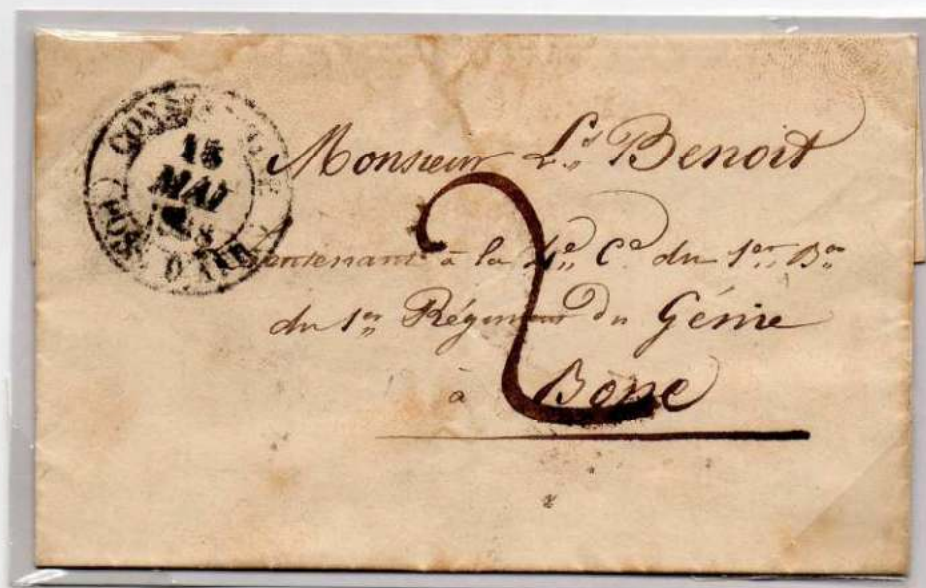 CONSTANTINE
15
MAI
POSS. D'AFR.
Monsieur Ls Benoit
2
Lieutenant à la 4e Cie du 1er Bon
du 1er Régiment du Génie
à Bone